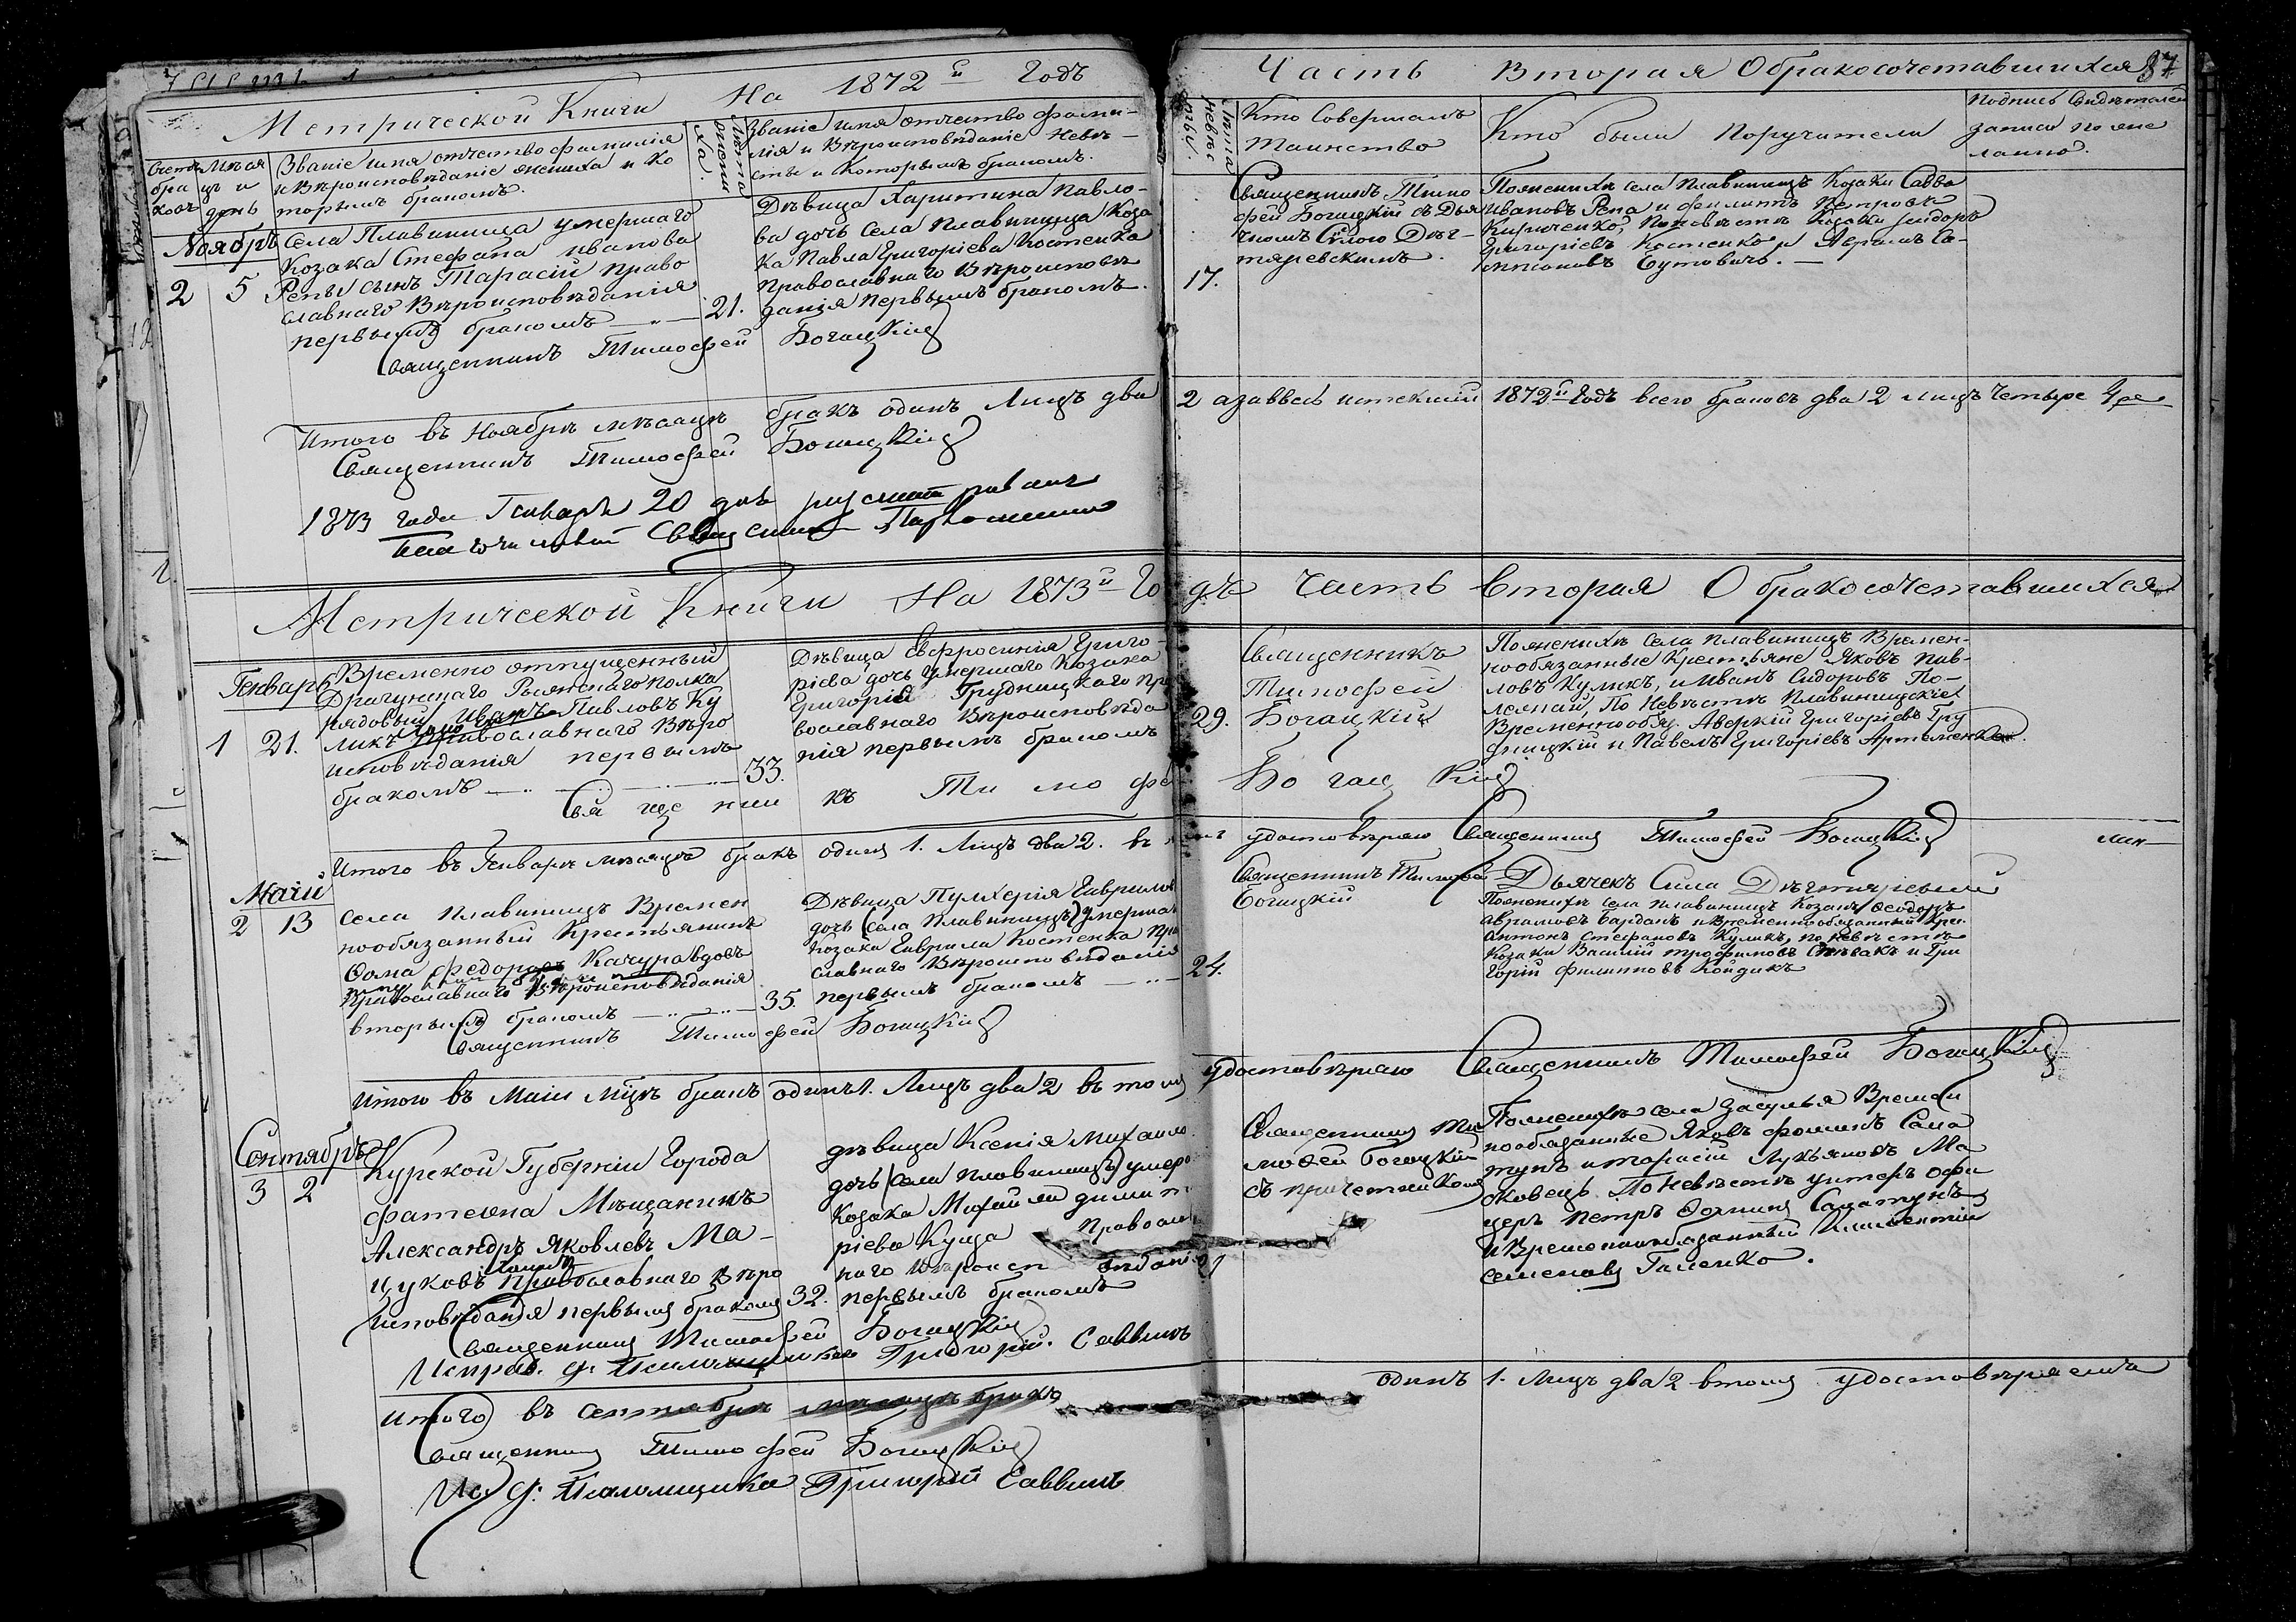 Метрической Книги На 1872й Годъ
Часть Вторая О бракосочетавшихся 87
Счетъ браковъ
Мѣсяцъ и день
Званіе имя отчество фамилія
и Вѣроисповѣданіе жениха и Ко
торымъ бракомъ.
Лѣта жениха.
Званіе имя отчество фами-
лія и Вѣроисповѣданіе Невѣ-
сты и Которымъ бракомъ.
Лѣта невѣсты.
Кто Совершалъ
Таинство
Кто были Поручители
Подпись Свидѣтелей
записи по же
ланію.
Ноябрь
2 5
Села Плавинища умершаго
Козака Стефана Иванова
Репы сынъ Тарасій право
славнаго Вѣроисповѣданія
первымъ бракомъ
21.
Дѣвица Харитина Павло-
ва дочь Села Плавинища Коза
ка Павла Григоріева Костенка
Православнаго Вѣроисповѣ
данія первымъ бракомъ.
17.
Священникъ Тимо
фей Богацкій съ Дья
чкомъ Силою Дѣг-
тяревскимъ.
По женихѣ села Плавинищъ Козаки Савва
Ивановъ Репа и Филиппъ Петровъ
Кириченко, По невѣстѣ Козаки Сидоръ
Григоріевъ Костенко и Аврамъ Са-
Бутовичъ.
Священникъ Тимофей Богацкій
Итого въ Ноябрѣ мѣсяцѣ бракъ одинъ Лицъ два 2 а за весь истекшій 1872й Годъ всего браковъ два 2 лицъ Четыре 4ре
Священникъ Тимофей Богацкій
1873 года Генваря 20 дня
Благочинный Священникъ
Метрической Книги На 1873й Годъ Часть Вторая О бракосочетавшихся
Генварь
1 21.
Временно отпущенный
Драгунскаго полка
рядовый Иванъ Павловъ Ку
ликъ Православнаго Вѣро
исповѣданія первымъ
бракомъ
33.
Дѣвица Евфросинія Григо-
ріева дочь умершаго Козака
Григорія Грудницкаго пра
вославнаго Вѣроисповѣда
нія первымъ бракомъ
29.
Священникъ
Тимофей
Богацкій
По женихѣ Села Плавинищъ Времен-
нообязанные Крестьяне Яковъ Пав-
ловъ Куликъ, и Иванъ Сидоровъ По-
По Невѣстѣ Плавинищскіе
Временнообяз. Аверкій Григоріевъ Гру
дницкій и Павелъ Григоріевъ Артеменко.
Священникъ Тимофей Богацкій
Итого въ Генварѣ мѣсяцѣ бракъ одинъ 1. Лицъ два 2. въ чемъ удостовѣряю Священникъ Тимофей Богацкій
Маій
2 13
Села Плавинищъ Времен
нообязанный Крестьянинъ
Фома Федоровъ Качура вдовъ
Православнаго Вѣроисповѣданія
вторымъ бракомъ
35.
Дѣвица Пулхерія Гаврилова
дочь (села Плавинищъ) умершаго
Козака Гавріила Костенка Пра
славнаго Вѣроисповѣданія
первымъ бракомъ
24.
Священникъ Тимофей
Богацкій
Дьячекъ Сила Дѣгтяревскій
По женихѣ села Плавинищъ Козакъ Феодоръ
Аврамовъ Барданъ и Временнообязанный Кре.
Антонъ Стефановъ Куликъ, по невѣстѣ
Козаки Василій Трофимовъ Спѣвакъ и Гри
горій Филипповъ Койдакъ
Священникъ Тимофей Богацкій
Итого въ Маіи мцѣ бракъ одинъ 1. Лицъ два 2 въ томъ удостовѣряю Священникъ Тимофей Богацкій
Сентябрь
3 2
Курской Губерніи Города
Фатежна Мѣщанинъ
Александръ Яковлевъ Ма-
цуковъ Православнаго Вѣро
исповѣданія первымъ бракомъ
32.
дѣвица Ксенія Михаило
дочь (села Плавинищъ) умерш
Козака Михаила Димит
ріева Куца Правосл
наго Вѣроисп вѣдані
первымъ бракомъ
21
Священникъ Ти
мофей Богацкій
съ причетникомъ
По женихѣ села Засулья Времен
нообязанные Яковъ Фоминъ Сала
тунъ и Тарасій Лукьяновъ Ма
ковецъ. По Невѣстѣ унтеръ офи
церъ Петръ Фоминъ Салатунъ
и Временнообязанный Климентій
Семеновъ Гаценко.
Священникъ Тимофей Богацкій
Исправ. д. Псаломщика Григорій Саввинъ
Итого въ Сентябрѣ мѣсяцѣ бракъ одинъ 1. Лицъ два 2 въ томъ удостовѣряемъ
Священникъ Тимофей Богацкій
Ис. д. Псаломщика Григорій Саввинъ